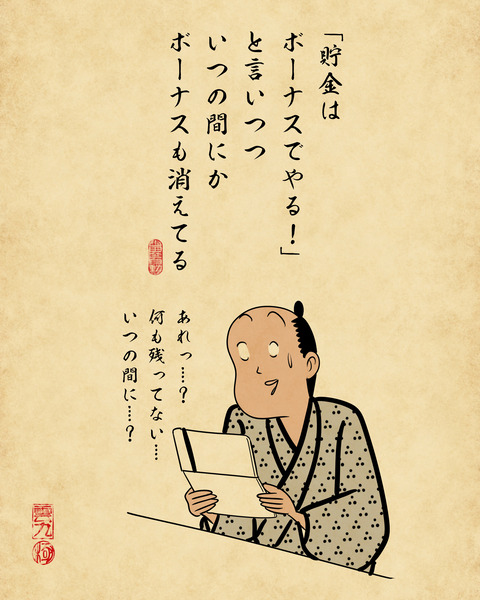 「貯金は
ボーナスでやる！」
と言いつつ
いつの間にか
ボーナスも消えてる
あれっ……？
何も残ってない……
いつの間に……？